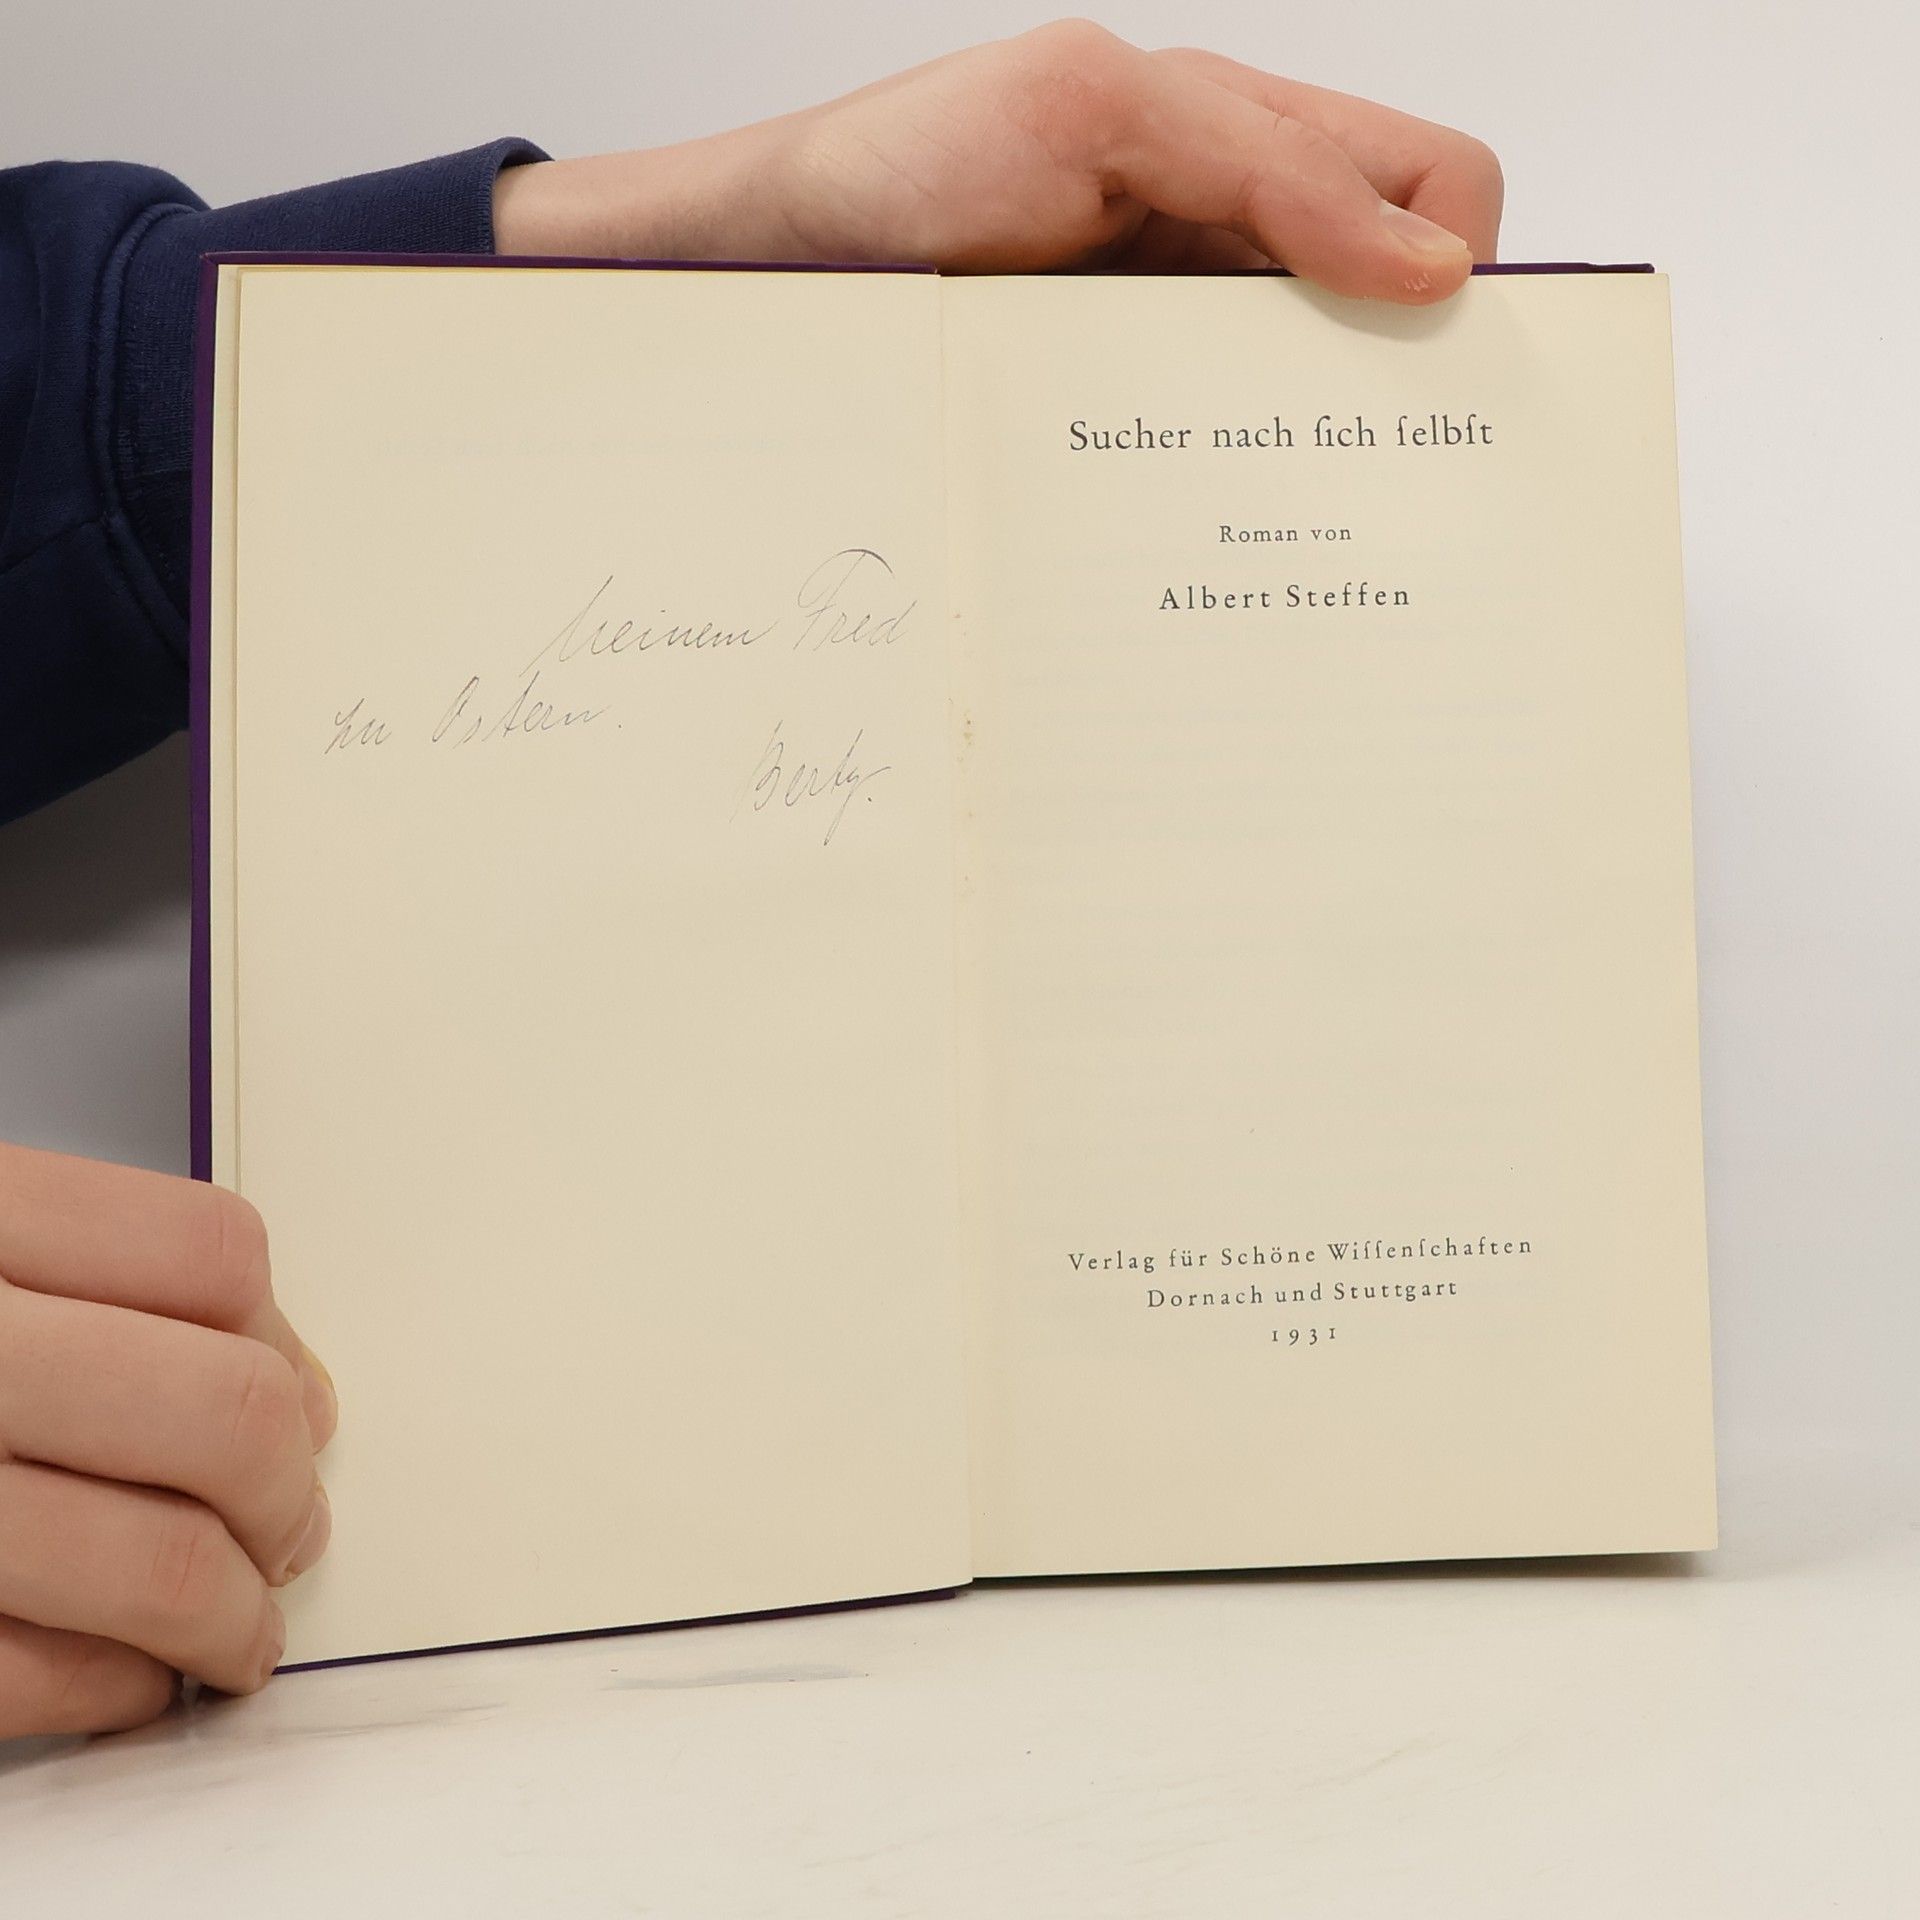 Meinem Fred
zu Ostern.
Berty.
Sucher nach ſich ſelbſt
Roman von
Albert Steffen
Verlag für Schöne Wiſſenſchaften
Dornach und Stuttgart
1931